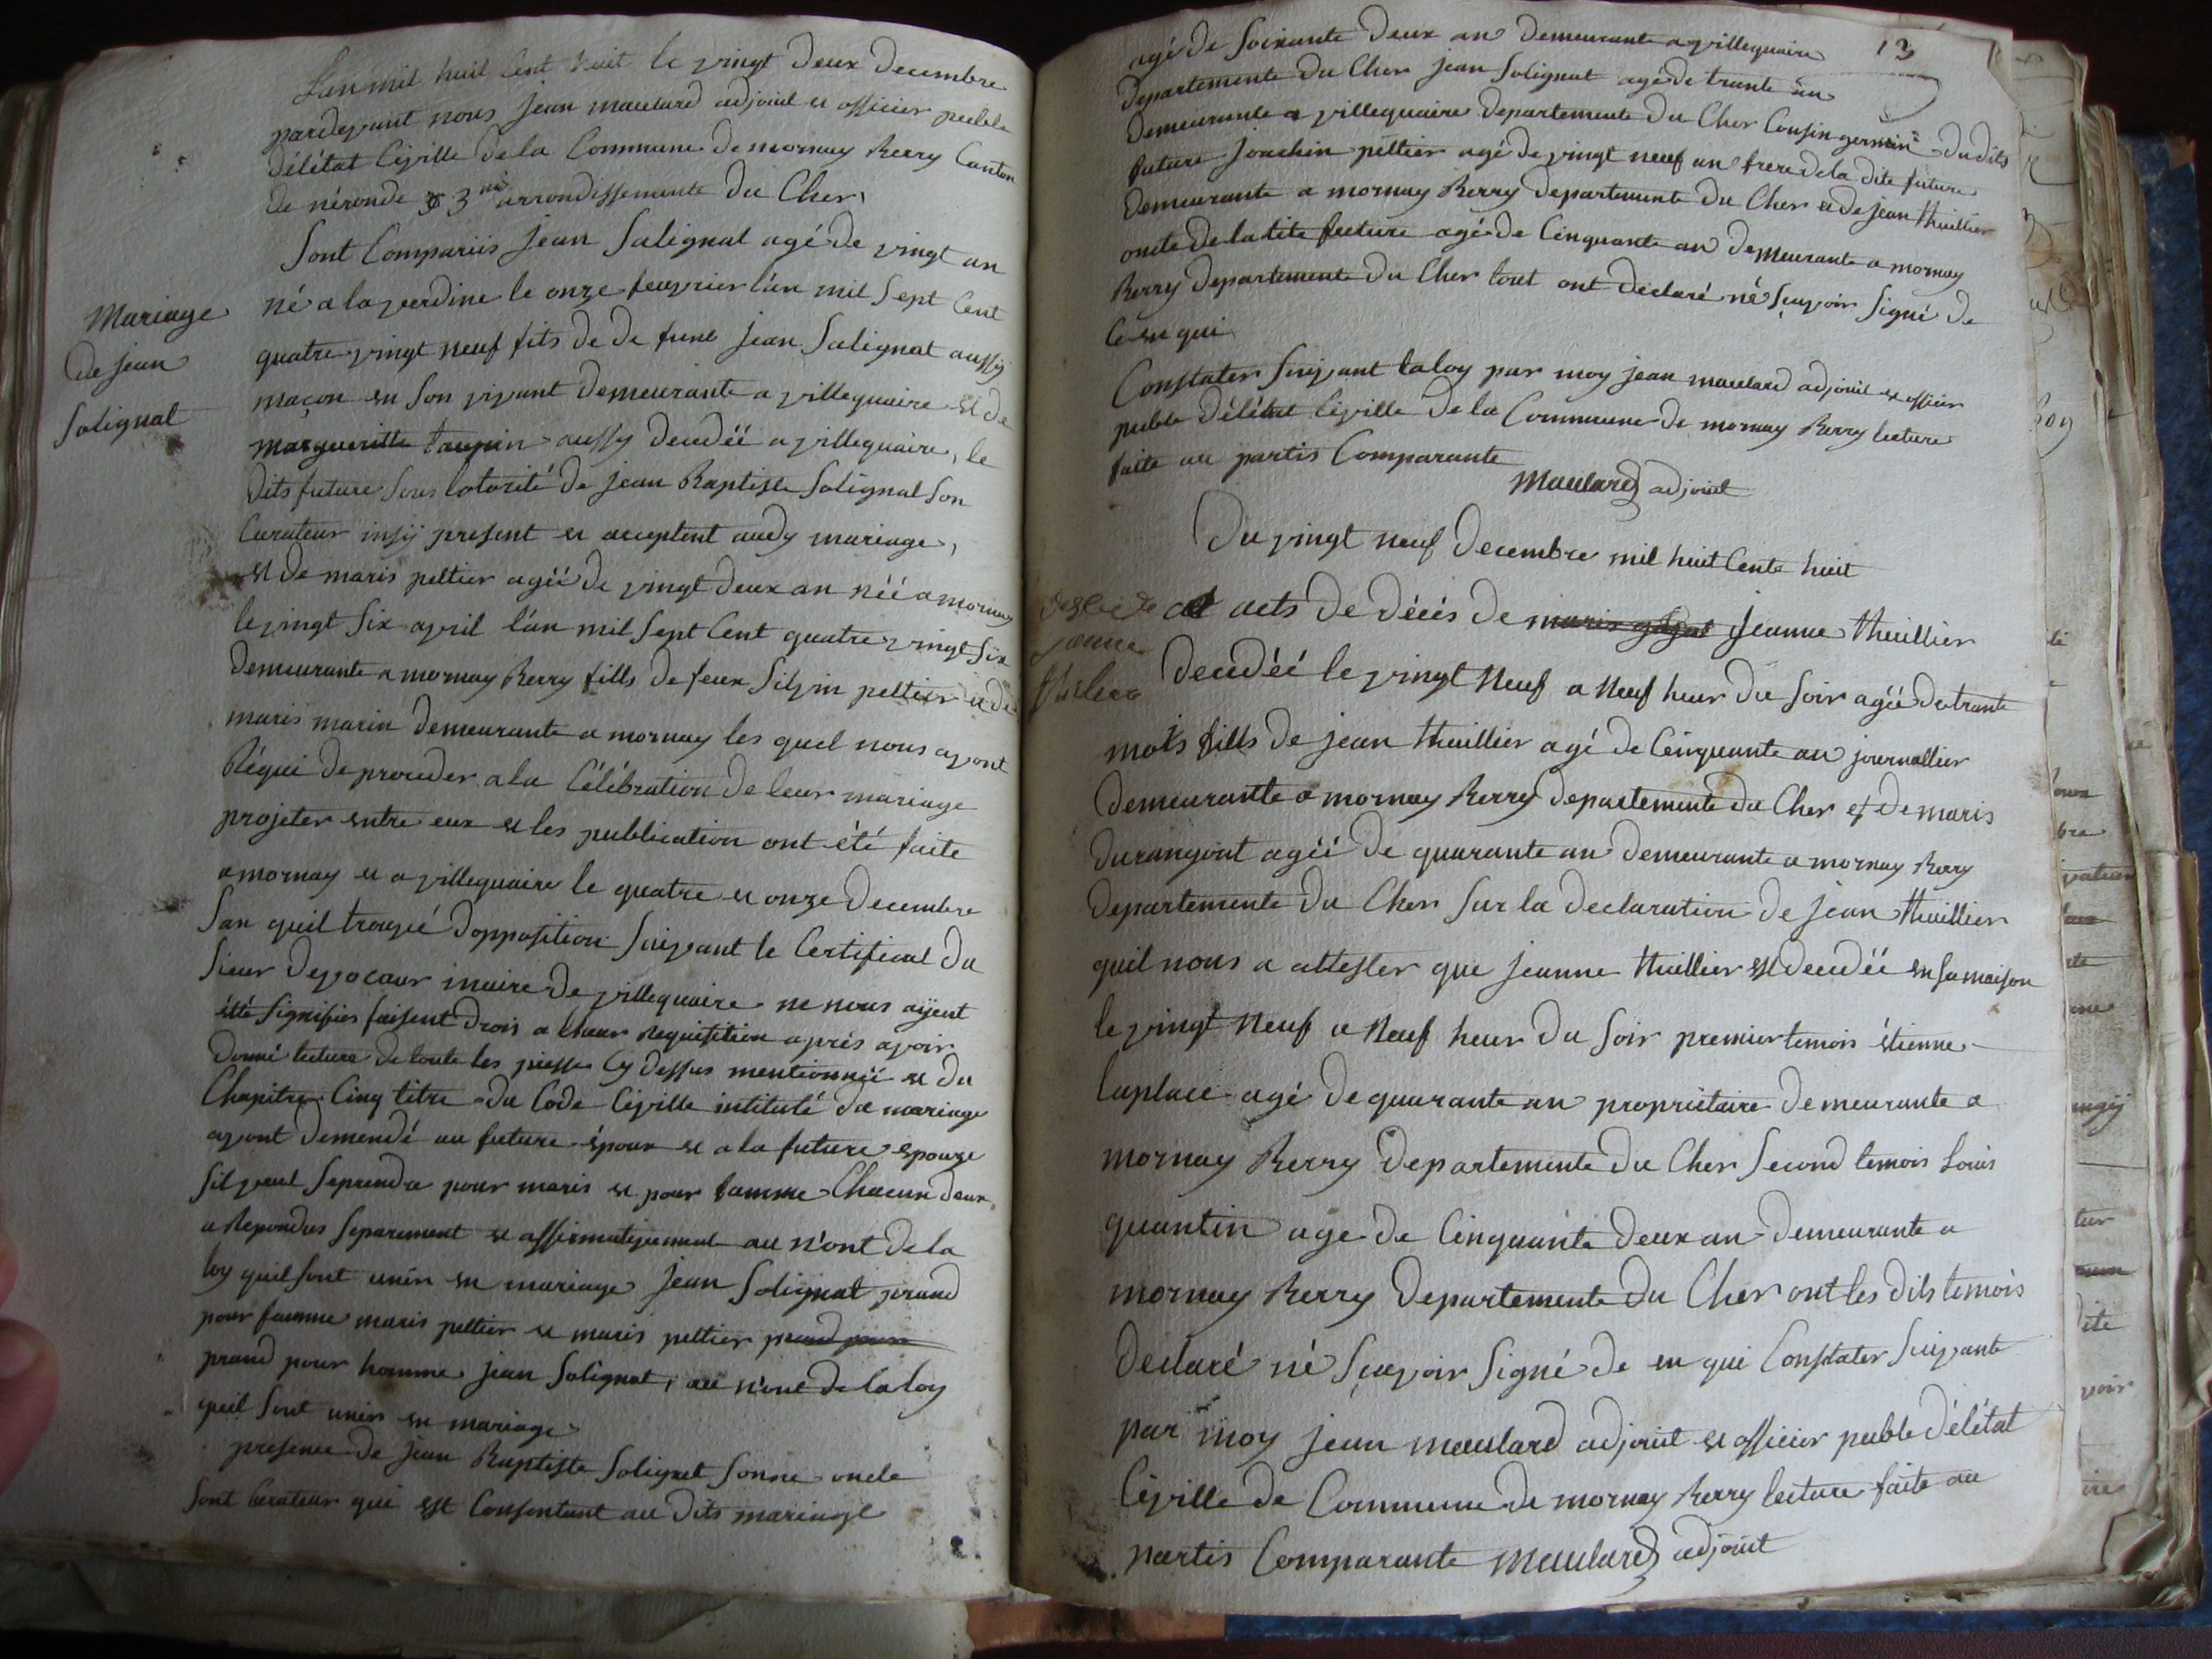 L'an mil huit Cent huit le vingt Deux Decembre
pardevant nous jean maulard adjoint et officier publle
délétat Céville de la Commune de mornay Berry Canton
de néronde 3me arrondissemente du Cher,
Sont Compariis jean Salignat agé de vingt an
né a la guerdine le onze feuvrier l'an mil Sept Cent
quatre vingt neuf fits de de funt jean Salignat aussÿ
maçon en Son vivant Demeurante a villequaire et de
margueritte taupin aussy decedéé a villequaire, le
Dits future Sous lotorité de jean Baptiste Salignat Son
Curateur insÿ present et acceptent audy mariage,
et De maris peltier agéé de vingt deux an néé a mornay
le vingt Six avril l'an mil Sept Cent quatre vingt Six
Demeurante a mornay Berry fills de feux Silvin peltier et de
maris marin demeurante a mornay les quel nous ayont
Réqui de proceder a la Célébration de leur mariage
projeter entre eux et les publication ont été faite
a mornay et a villequaire le quatre et onze Decembre
San quil trouvé Dopposition Suivant le Certificat Du
Sieur maire De villequaire ne nous aÿent
été Signifier faisent Drois a leur Requisition aprés avoir
Donné lecture de toute les piesse Cy dessus mentionnéé et du
Chapitre Cinq titre du Code Céville intitulé du mariage
ayont Demendé au future époux et a la future epouze
Sil veul Seprendre pour maris et pour famme Chacun deux
a Repondus Separement et affirmativement au n'ont de la
loy quil Sont unin en mariage jean Salignat prand
pour famme maris peltier et maris peltier prand pour
prand pour homme jean Salignat, au n'ont de la loy
quil Sont unin en mariage
presence de jean Baptiste Salignat Sonne oncle
Sont Curateur qui est Consentant au Dits mariage
Mariage
de jean
Salignat
13
agé de Soixante Deux an Demeurante a villequaire
Departemente du Cher jean Salignat agé de trante an
Demeurante a villequaire departemente du Cher Cousin germin du dits
future joachin peltier agé de vingt neuf an frere de la dite future
Demeurante a mornay Berry departemente du Cher et de jean thuillier
oncle de la tite future agé de Cinquante an demeurante a mornay
Berry departemente du Cher tout ont declaré né Sçavoir Signé de
Ce en qui
Constater Suivant la loy par moy jean maulard adjoint et officier
publle délétat Céville de la Commune de mornay Berry lecture
faite au partis Comparante
Maulard adjoint
Du vingt neuf decembre mil huit Cente huit
acts de décés de maris jeanne thuillier
Decedéé le vingt Neuf a Neuf heur du Soir agéé de trante
mois fills de jean thuillier agé de Cinquante an journallier
Demeurante a mornay Berry departemente du Cher et de maris
durangont agéé de quarante an demeurante a mornay Berry
Departemente du Cher Sur la declaration de jean thuillier
quil nous a attester que jeanne thuillier est decedéé en Sa maison
le vingt Neuf a Neuf heur du Soir premier temois étienne
laplace agé de quarante an propriétaire demeurante a
mornay Berry departemente du Cher Second temois Louis
quantin age de Cinquante deux an demeurante a
mornay Berry departemente du Cher ont les dits temois
Declaré né Sçavoir Signé de en qui Constater Suivante
par moy jean maulard adjoint et officier publle délétat
Céville de Commune de mornay Berry lecture faite au
partis Comparante Maulard adjoint
jeanne